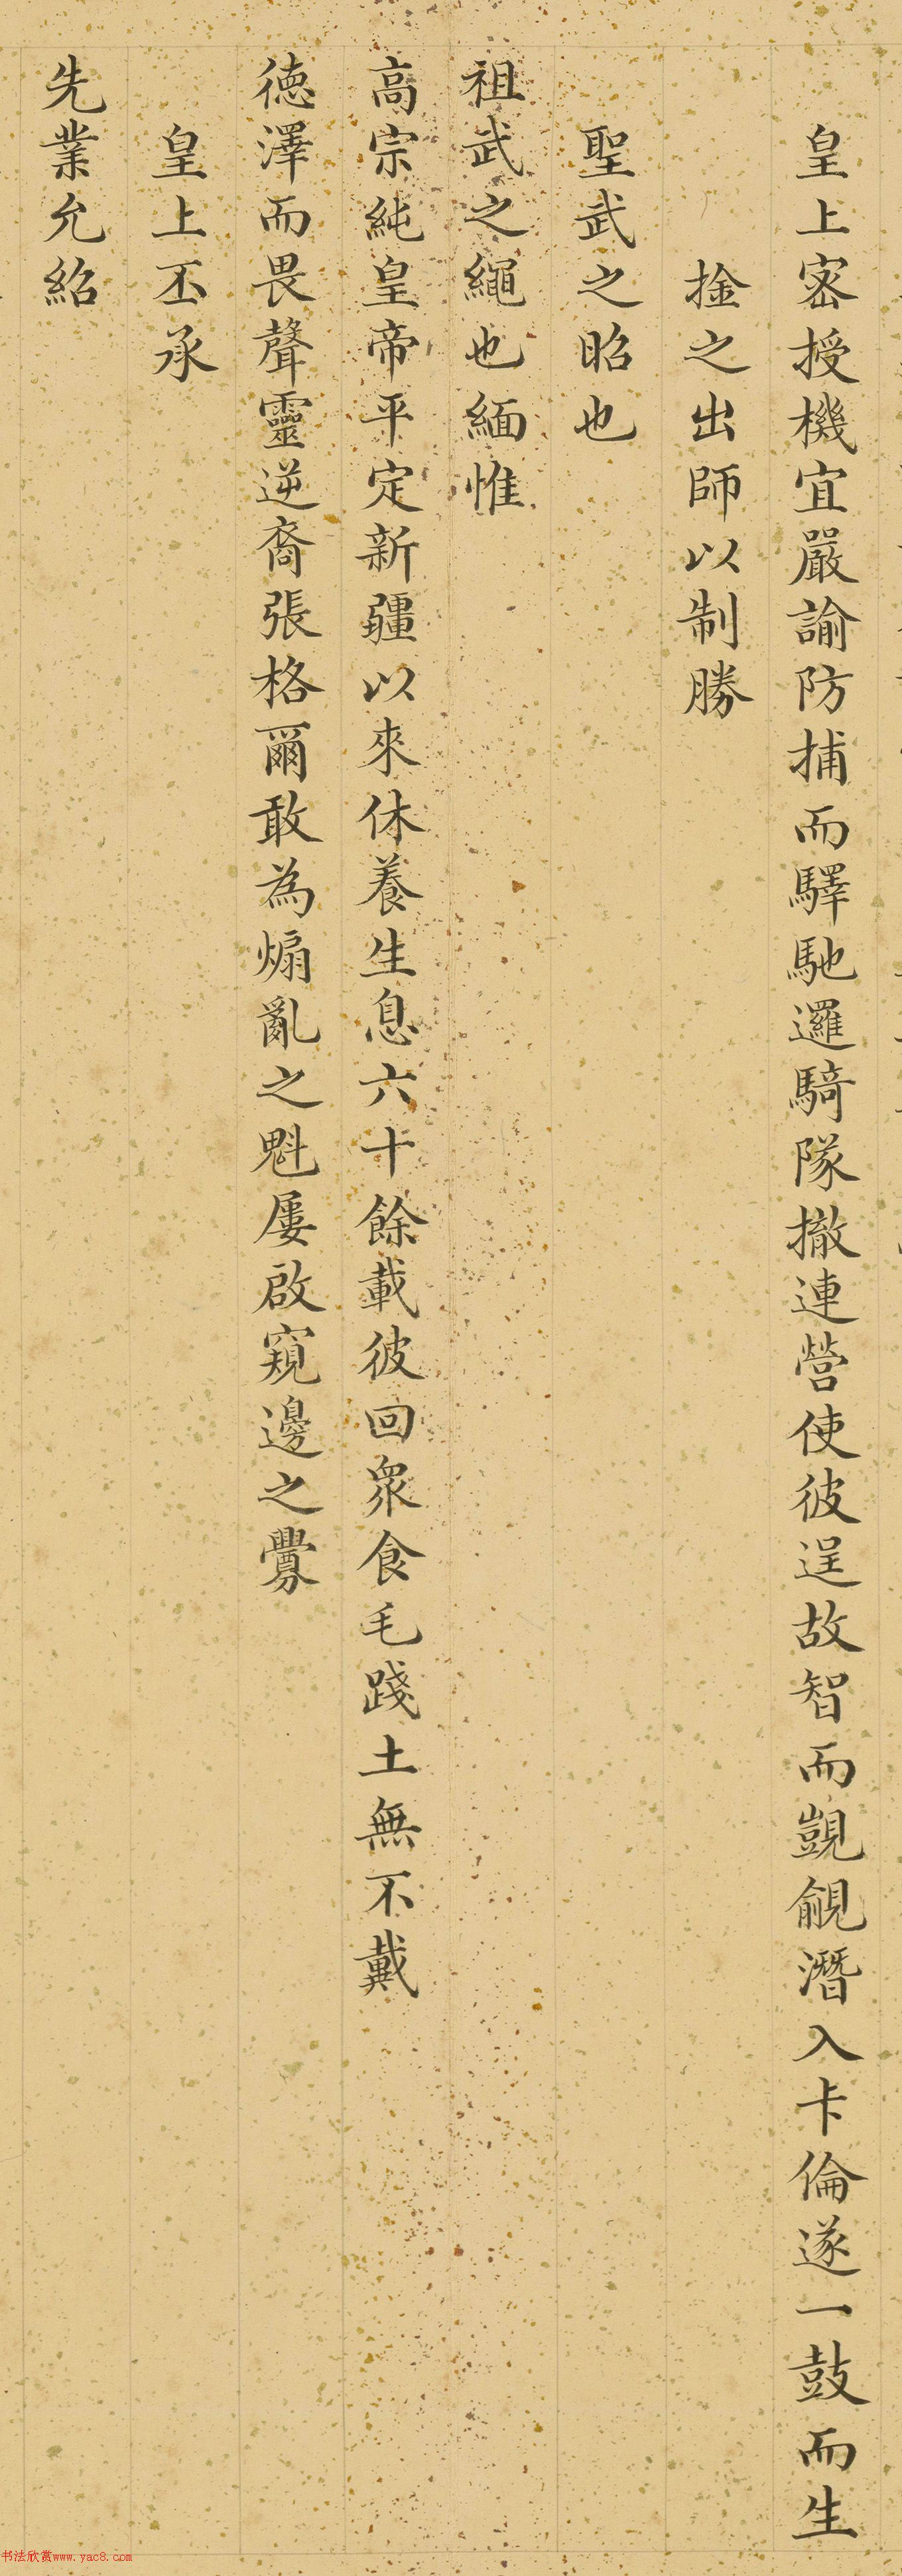 皇上密授機宜嚴諭防捕而驛馳邏騎隊撤連營使彼逞故智而覬覦潛入卡倫遂一鼓而生
捡之出師以制勝
聖武之昭也
祖武之繩也緬惟
高宗純皇帝平定新疆以來休養生息六十餘載彼回眾食毛踐土無不戴
德澤而畏聲靈逆裔張格爾敢為煽亂之魁屢啟窺邊之釁
皇上丕承
先業允紹
书法欣赏www.yac8.com